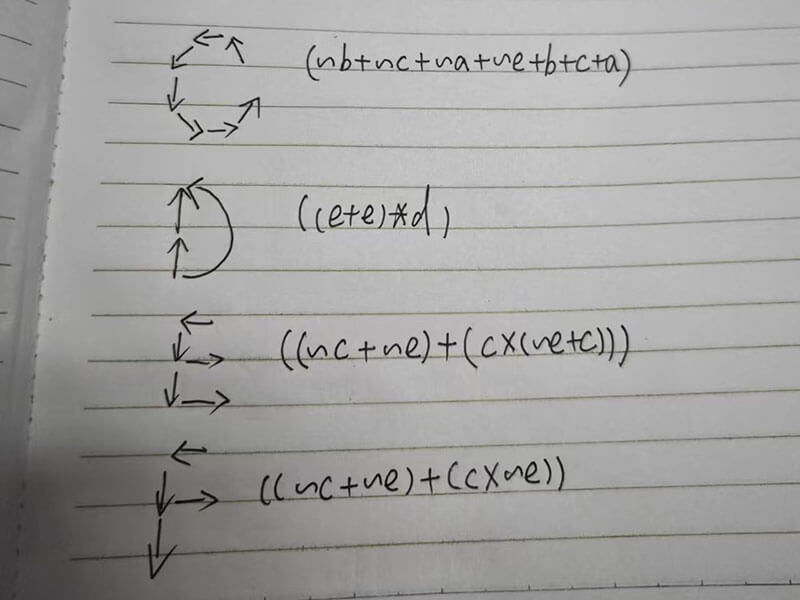 (nb+nc+na+ne+b+c+a)
((e+e)*d)
((nc+ne)+(c×(ne+c)))
((nc+ne)+(c×ne))